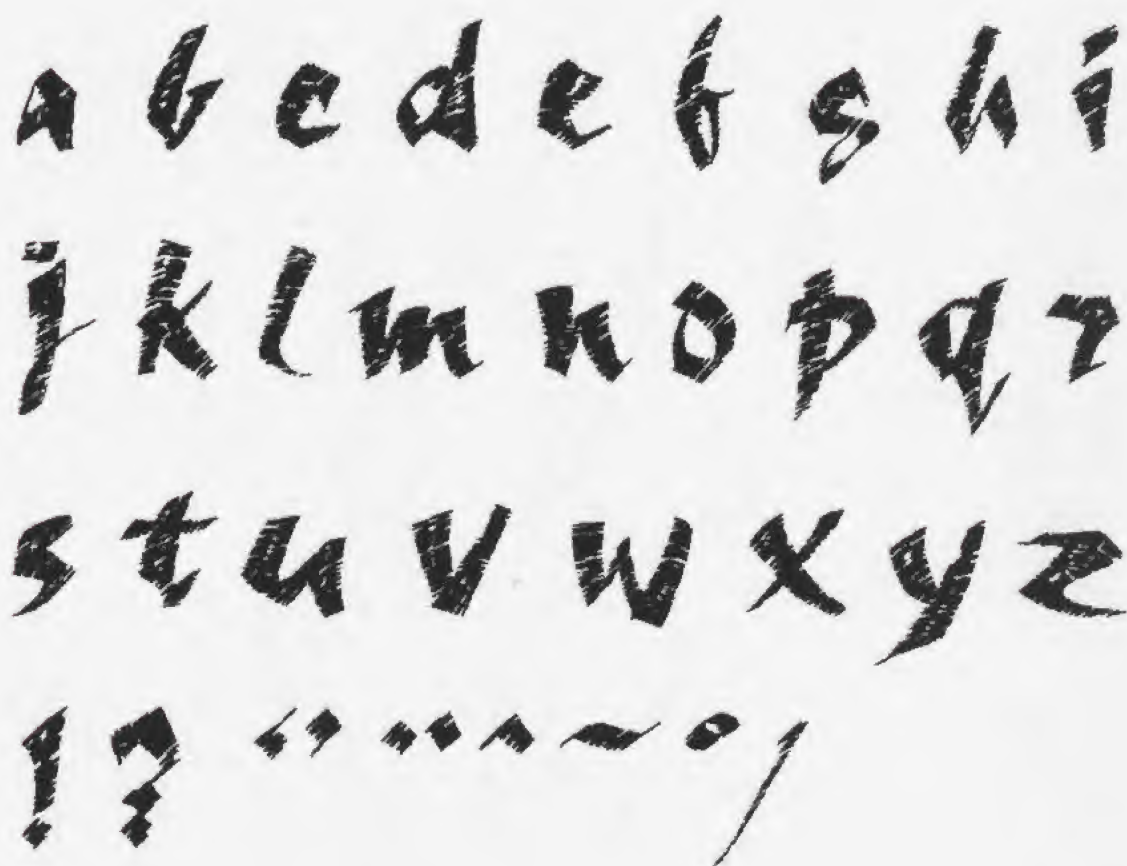 a b c d e f g h i
j k l m n o p q r
s t u v w x y z
! ? “ ” ¨ ^ ~ ° /